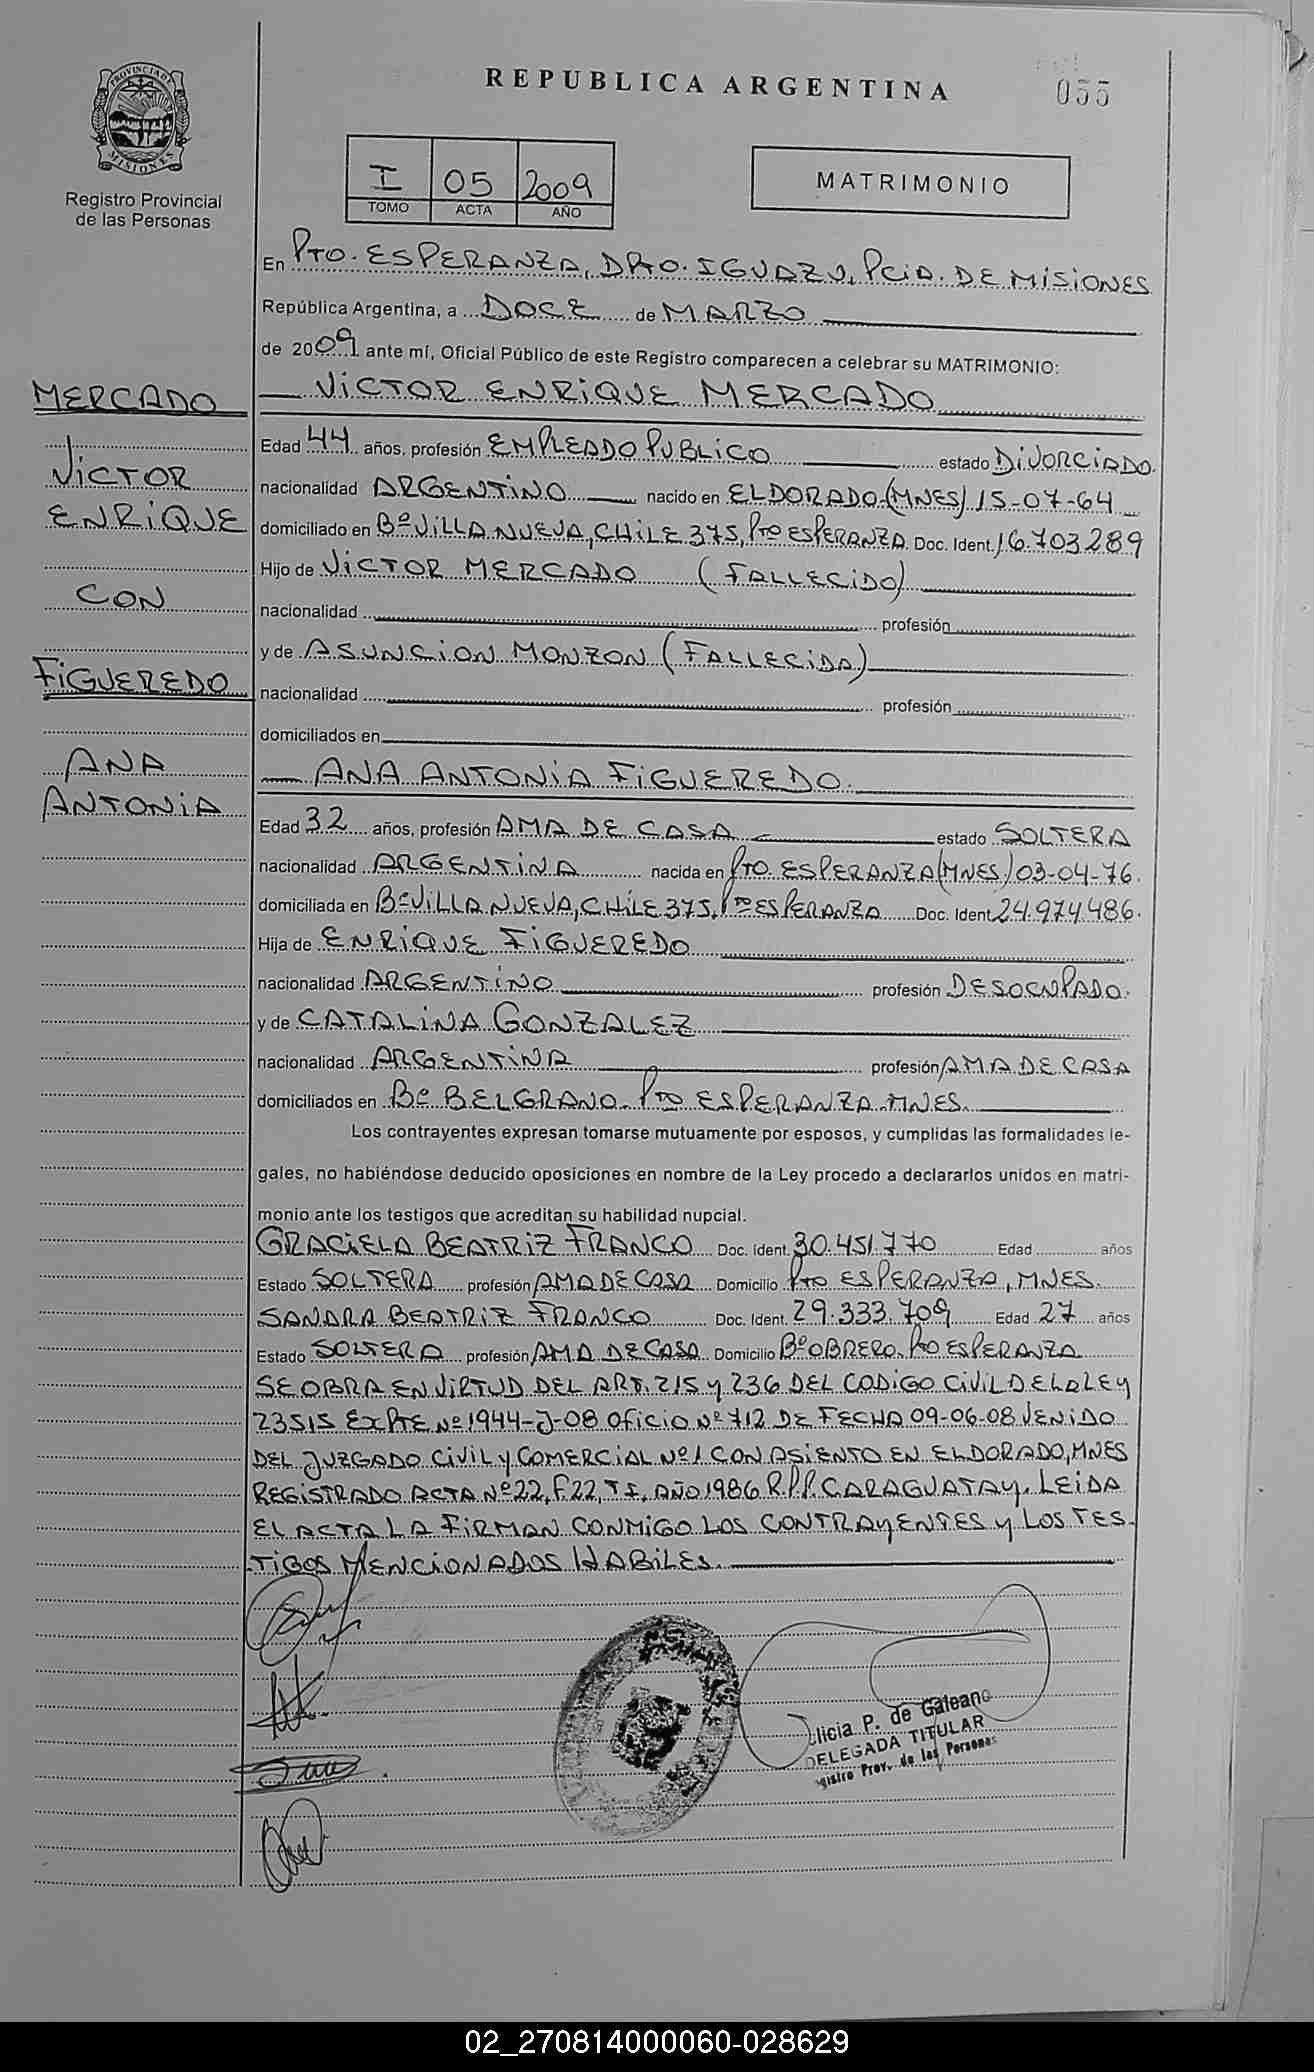 PROVINCIA DE MISIONES
Registro Provincial
de las Personas
REPUBLICA ARGENTINA
055
I 05 2009
TOMO ACTA AÑO
MATRIMONIO
En PTO. ESPERANZA, DPTO. IGUAZU, PCIA. DE MISIONES
República Argentina, a DOCE de MARZO
de 2009 ante mí, Oficial Público de este Registro comparecen a celebrar su MATRIMONIO:
MERCADO
VICTOR
ENRIQUE
CON
FIGUEREDO
ANA
ANTONIA
VICTOR ENRIQUE MERCADO
Edad 44 años, profesión EMPLEADO PUBLICO estado DIVORCIADO.
nacionalidad ARGENTINO nacido en ELDORADO (MNES) 15-07-64
domiciliado en Bº VILLA NUEVA, CHILE 375, PTO ESPERANZA Doc. Ident. 16.703289
Hijo de VICTOR MERCADO (FALLECIDO)
nacionalidad profesión
y de ASUNCION MONZON (FALLECIDA)
nacionalidad profesión
domiciliados en
ANA ANTONIA FIGUEREDO.
Edad 32 años, profesión AMA DE CASA estado SOLTERA
nacionalidad ARGENTINA nacida en PTO. ESPERANZA (MNES) 03-04-76.
domiciliada en Bº VILLA NUEVA, CHILE 375, PTO ESPERANZA Doc. Ident 24.974.486.
Hija de ENRIQUE FIGUEREDO
nacionalidad ARGENTINO profesión DESOCUPADO.
y de CATALINA GONZALEZ
nacionalidad ARGENTINA profesión AMA DE CASA
domiciliados en Bº BELGRANO. PTO ESPERANZA MNES.
Los contrayentes expresan tomarse mutuamente por esposos, y cumplidas las formalidades le-
gales, no habiéndose deducido oposiciones en nombre de la Ley procedo a declararlos unidos en matri-
monio ante los testigos que acreditan su habilidad nupcial.
GRACIELA BEATRIZ FRANCO Doc. Ident. 30.451.770 Edad años
Estado SOLTERA profesión AMA DE CASA Domicilio PTO ESPERANZA, MNES.
SANDRA BEATRIZ FRANCO Doc. Ident. 29.333.709 Edad 27 años
Estado SOLTERA profesión AMA DE CASA Domicilio Bº OBRERO. PTO ESPERANZA
SE OBRA EN VIRTUD DEL ART. 215 y 236 DEL CODIGO CIVIL DE LA LEY
23515 EXPTE Nº 1944-J-08 OFICIO Nº 712 DE FECHA 09-06-08 VENIDO
DEL JUZGADO CIVIL y COMERCIAL Nº 1 CON ASIENTO EN ELDORADO, MNES
REGISTRADO ACTA Nº 22, F 22, T I, AÑO 1986 R.P.P. CARAGUATAY. LEIDA
EL ACTA LA FIRMAN CONMIGO LOS CONTRAYENTES y LOS TES-
TIGOS MENCIONADOS HABILES.
licia P. de Galeano
DELEGADA TITULAR
gistro Prov. de las Personas
02_270814000060-028629